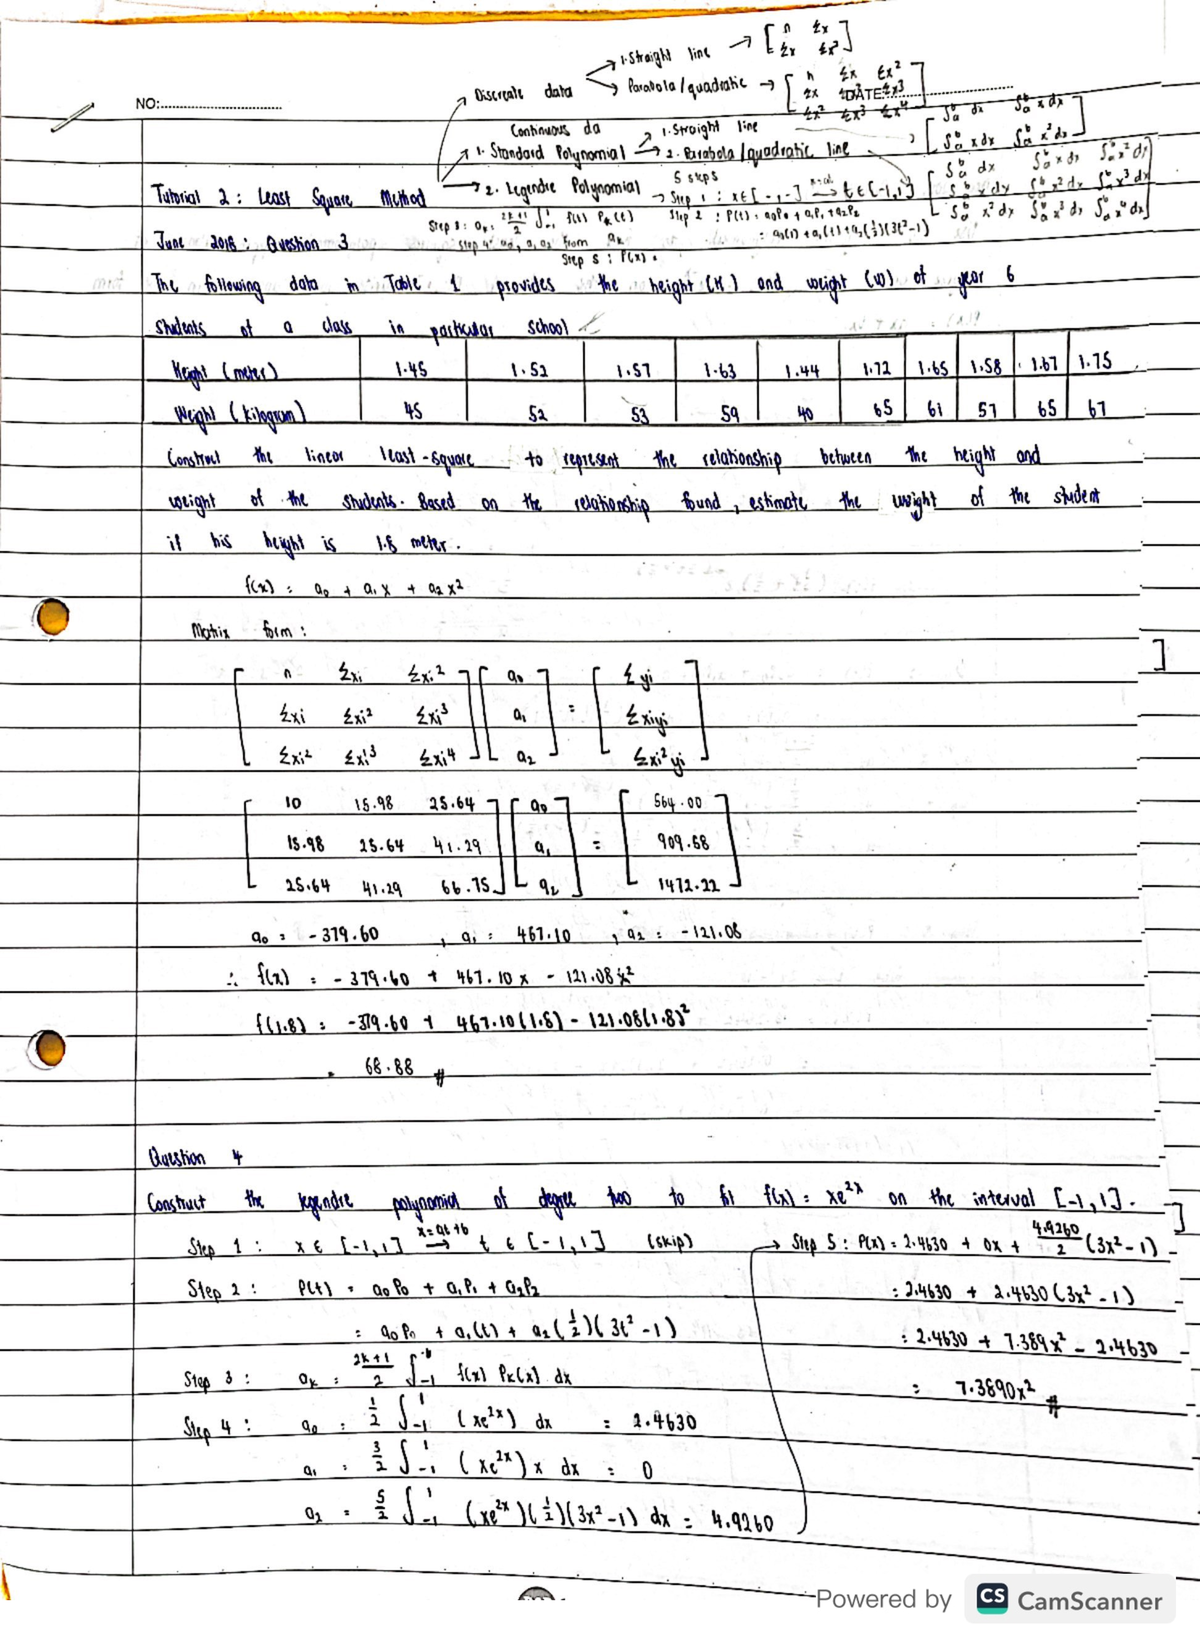 1. Straight line → [ n Σx
Σx Σx² ]
Discreate data
Parabola/quadratic → [ n Σx Σx²
NO:
Σx Σx² Σx³
DATE:
Σx² Σx³ Σx⁴ ]
Continuous da
1. Straight line
[ ∫ₐᵇ dx ∫ₐᵇ x dx
∫ₐᵇ x dx ∫ₐᵇ x² dx ]
1. Standard Polynomial → 2. Parabola/quadratic line
[ ∫ₐᵇ dx ∫ₐᵇ x dx ∫ₐᵇ x² dx
∫ₐᵇ x dx ∫ₐᵇ x² dx ∫ₐᵇ x³ dx
∫ₐᵇ x² dx ∫ₐᵇ x³ dx ∫ₐᵇ x⁴ dx ]
5 steps
Tutorial 2 : Least Square Method → 2. Legendre Polynomial → Step 1 : x ∈ [-,-] → t ∈ [-1,1]
Step 2 : P(t) = a₀P₀ + a₁P₁ + a₂P₂
= a₀(1) + a₁(t) + a₂(½)(3t²-1)
Step 3 : aₖ = 2k+1/2 ∫₋₁¹ f(t) Pₖ(t)
Step 4 : a₀, a₁, a₂ from aₖ
Step 5 : P(x) =
June 2018 : Question 3
The following data in Table 1 provides the height (H) and weight (W) of year 6
students of a class in particular school
Height (meter) 1.45 1.52 1.57 1.63 1.44 1.72 1.65 1.58 1.67 1.75
Weight (kilogram) 45 52 53 59 40 65 61 57 65 67
Construct the linear least-square to represent the relationship between the height and
weight of the students. Based on the relationship found, estimate the weight of the student
if his height is 1.8 meter.
f(x) = a₀ + a₁x + a₂x²
Matrix form :
[ n Σxi Σxi² ] [ a₀ ] [ Σyi ]
[ Σxi Σxi² Σxi³ ] [ a₁ ] = [ Σxiyi ]
[ Σxi² Σxi³ Σxi⁴ ] [ a₂ ] [ Σxi²yi ]
[ 10 15.98 25.64 ] [ a₀ ] [ 564.00 ]
[ 15.98 25.64 41.29 ] [ a₁ ] = [ 909.68 ]
[ 25.64 41.29 66.75 ] [ a₂ ] [ 1472.22 ]
a₀ = -379.60 , a₁ = 467.10 , a₂ = -121.08
∴ f(x) = -379.60 + 467.10x - 121.08x²
f(1.8) = -379.60 + 467.10(1.8) - 121.08(1.8)²
= 68.88 #
Question 4
Construct the legendre polynomial of degree two to fit f(x) = xe²ˣ on the interval [-1,1].
Step 1 : x ∈ [-1,1] x=at+b → t ∈ [-1,1] (skip)
Step 2 : P(t) = a₀P₀ + a₁P₁ + a₂P₂
= a₀P₀ + a₁(t) + a₂(½)(3t²-1)
Step 3 : aₖ = 2k+1/2 ∫₋₁ f(x) Pₖ(x) dx
Step 4 : a₀ = 1/2 ∫₋₁¹ (xe²ˣ) dx = 2.4630
a₁ = 3/2 ∫₋₁¹ (xe²ˣ) x dx = 0
a₂ = 5/2 ∫₋₁¹ (xe²ˣ)(½)(3x²-1) dx = 4.9260
→ Step 5 : P(x) = 2.4630 + 0x + 4.9260/2 (3x²-1)
= 2.4630 + 2.4630(3x²-1)
= 2.4630 + 7.389x² - 2.4630
= 7.3890x² #
Powered by CS CamScanner